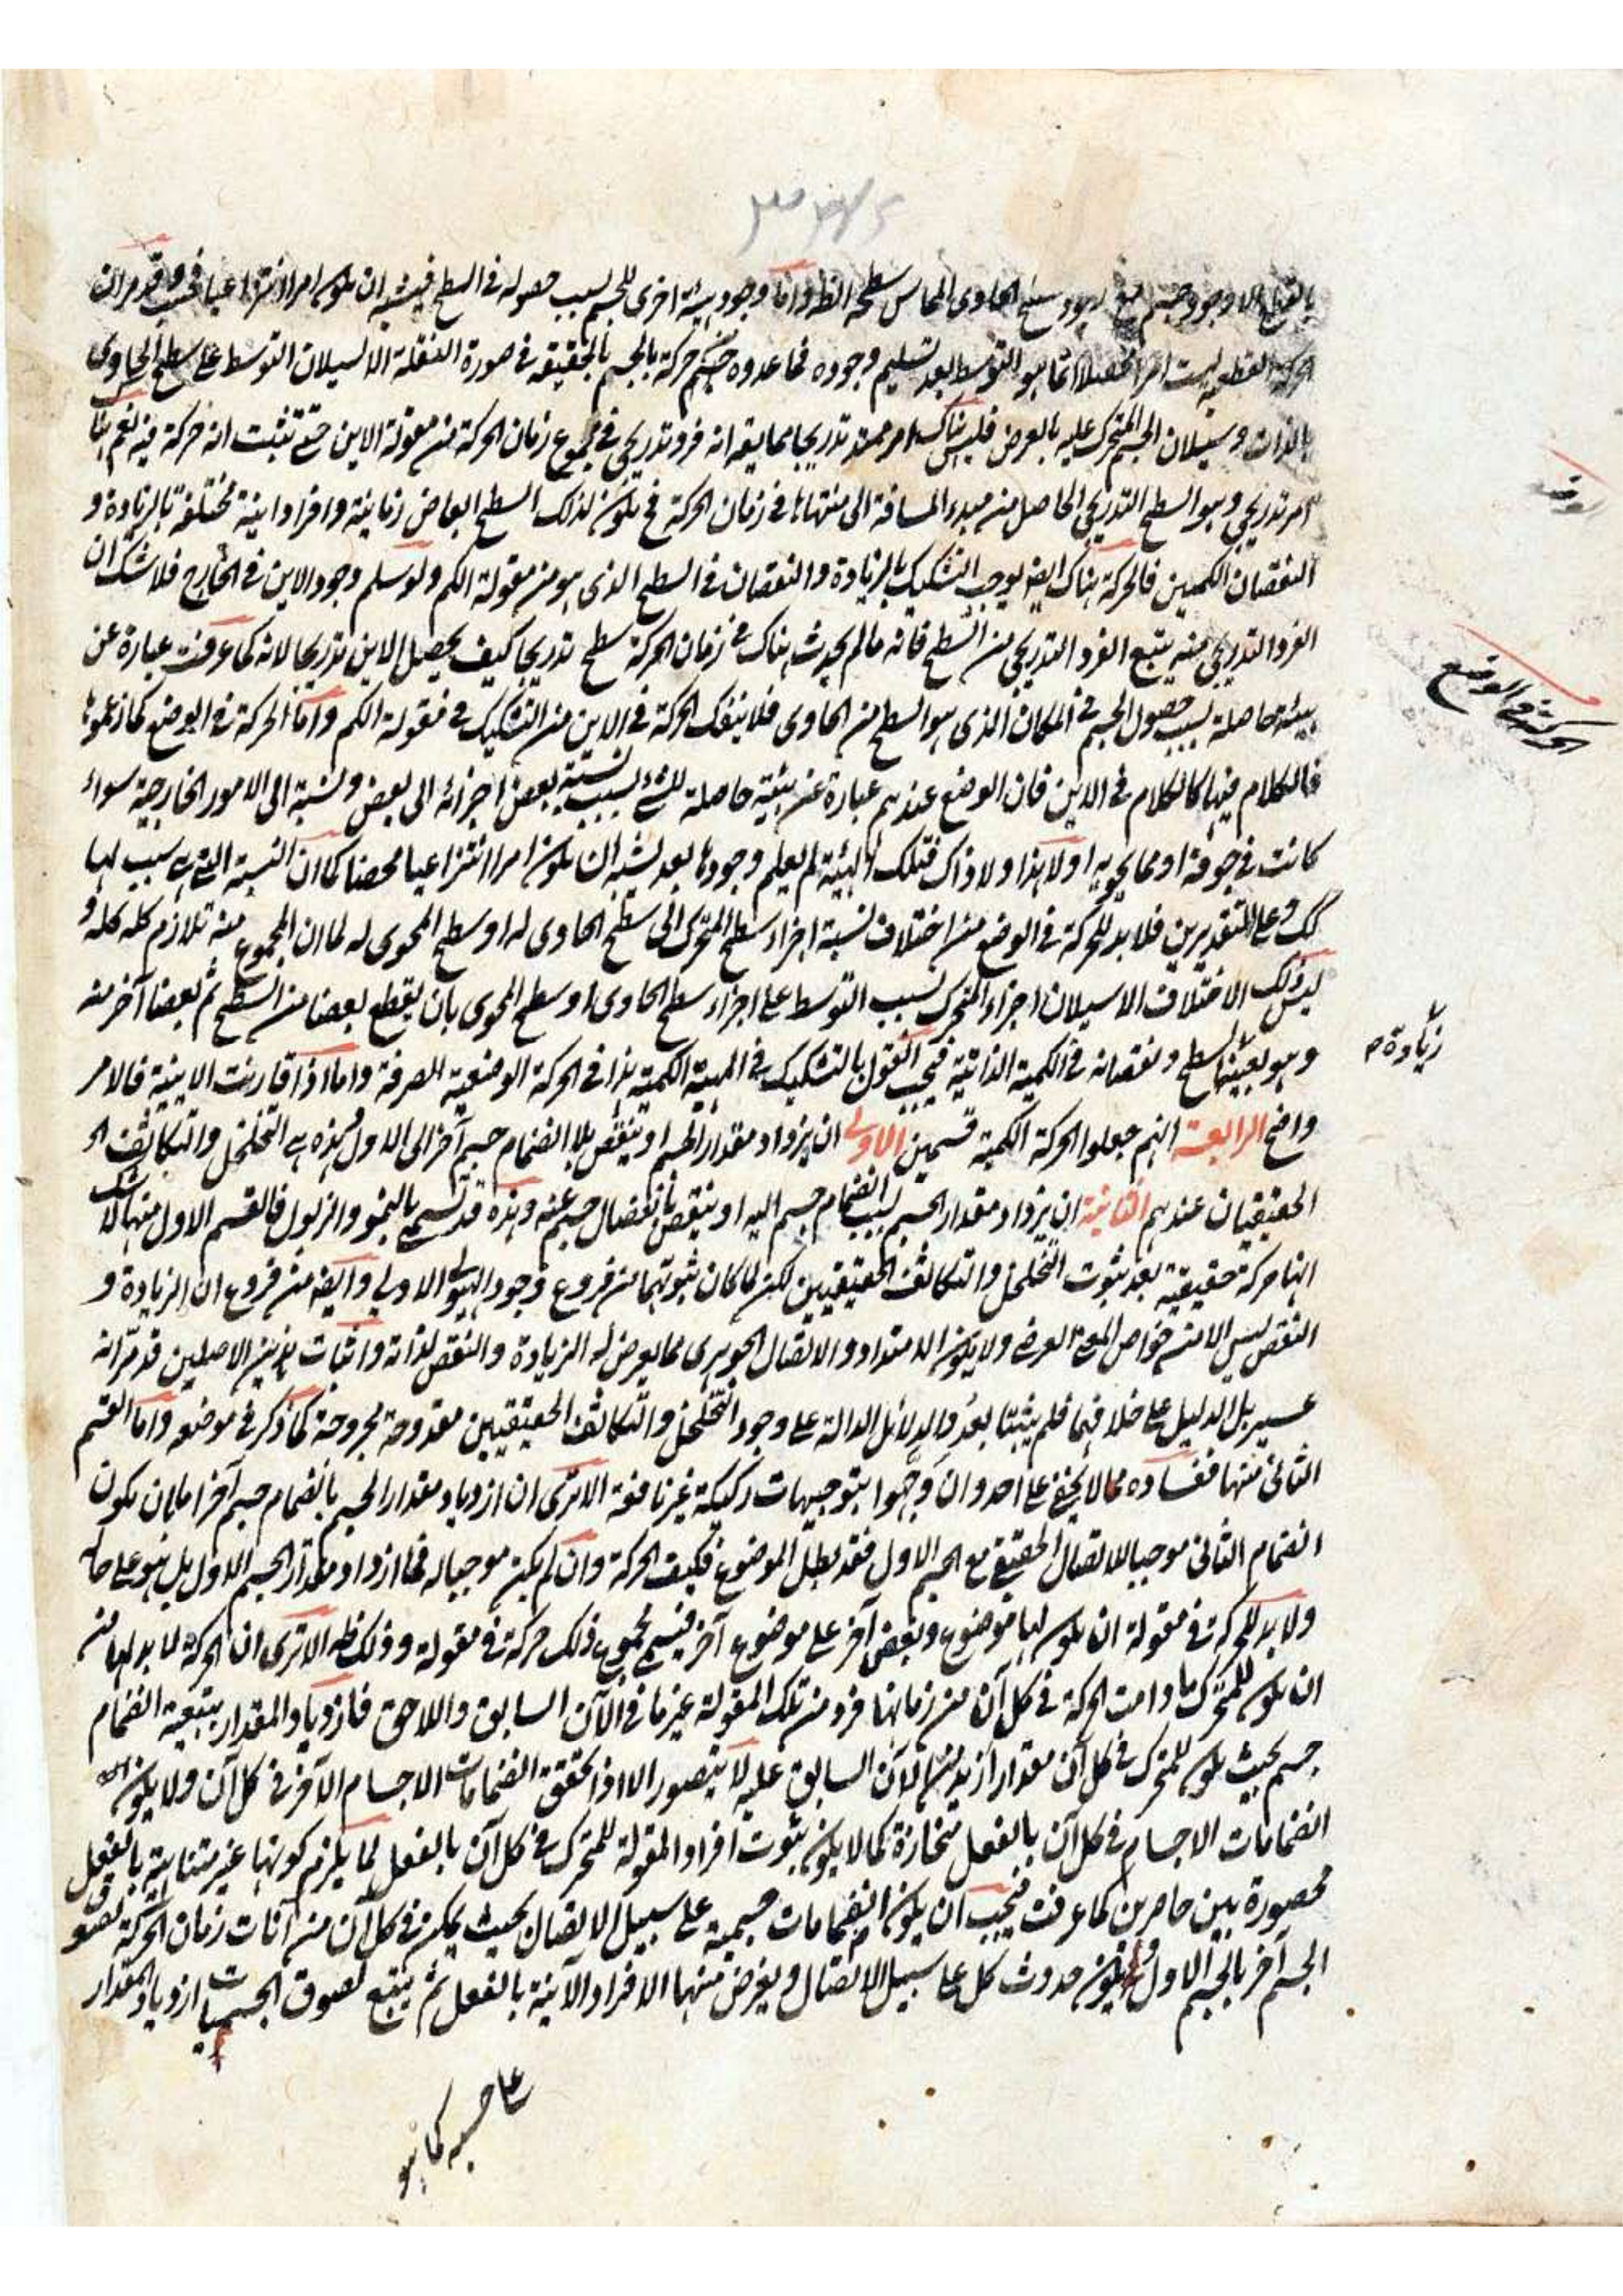 الا وجود جسم مع وجود سطح الحاوى المماس سطحه الظ واما وجود هيئة اخرى للجسم بسبب حصوله فى السطح فيشبه ان يكون امرا انتزاعيا فحسب وقد مر ان
الحركة القطعية ليست امرا محصلا انما هو التوسط بعد تسليم وجوده فما عدوه حركة بالحقيقة فى صورة النقلة الا لسيلان التوسط على سطح الحاوى
بالذات وسيلان الجسم المتحرك عليه بالعرض فليس هناك امر ممتد تدريجا مما يقه انه فرد تدريجى فى مجموع زمان الحركة من مقولة الاين حتى تثبت انه حركة فيه نعم هنا
امر تدريجى وهو السطح التدريجى الحاصل من مبدء المسافة الى منتهاها فى زمان الحركة فح يكون لذلك السطح ابعاض زمانية وافراد اينية مختلفة بالزيادة و
النقصان الكميين فالحركة هناك ايضا يوجب التشكيك بالزيادة والنقصان فى السطح الذى هو من مقولة الكم ولو سلم وجود الاين فى الخارج فلا شك ان
الفرد التدريجى منه يتبع الفرد التدريجى من السطح فانه ما لم يحدث هناك فى زمان الحركة سطح تدريجا كيف يحصل الاين تدريجا لانه كما عرفت عبارة عن
هيئة حاصلة بسبب حصول الجسم فى المكان الذى هو السطح من الحاوى فلا ينفك الحركة فى الاين من التشكيك فى مقولة الكم واما الحركة فى الوضع كما زعموها
فالكلام فيها كالكلام فى الاين فان الوضع عندهم عبارة عن هيئة حاصلة للشئ بسبب نسبة بعض اجزائه الى بعض ونسبة الى الامور الخارجية سواء
كانت فى جوفه او مما يحويه او لا هذا ولا ذاك فتلك الهيئة لم يعلم وجودها بعد يشبه ان يكون امرا انتزاعيا محضا كما ان النسبة التى هى سبب لها
كك وعلى التقديرين فلا بد للحركة فى الوضع من اختلاف نسبة اجزاء سطح المتحرك الى سطح الحاوى له او سطح المحوى له لما ان المجموع منه تلازم كله كله و
ليس ذلك الاختلاف الا سيلان اجزاء المتحرك بسبب التوسط على اجزاء سطح الحاوى او سطح المحوى بان يقطع بعضا من السطح ثم بعضا آخر منه
وهو بعينها سطح ونقصانه فى الكمية الذاتية فيجب القول بالتشكيك فى المهية الكمية هذا فى الحركة الوضعية الصرفة واما اذا قارنت الاينية فالامر
واضح الرابعة انهم جعلوا الحركة الكمية قسمين الاولى ان يزداد مقدار الجسم او ينقص بلا انضمام جسم آخر الى الاول وهذه هى التخلخل والتكاثف
الحقيقيان عندهم الثانية ان يزداد مقدار الجسم بسبب انضمام جسم اليه او ينقص بانفصال جسم عنه وهذه قد تسمى بالنمو والذبول فالقسم الاول منها لا شك
انها حركة حقيقية بعد ثبوت التخلخل والتكاثف الحقيقيين لكن لما كان ثبوتهما من فروع وجود الهيولى الاولى وايضا من فروع ان الزيادة و
النقص ليس الا من خواص المعنى العرضى ولا يكون الامتداد والاتصال الجوهرى مما يعرض له الزيادة والنقص لذاته واثبات هذين الاصلين قد مر انه
عسير بل الدليل على خلافهما فلم يثبتا بعد والدلائل الدالة على وجود التخلخل والتكاثف الحقيقيين مقدوحة مجروحة كما ذكر فى موضعه واما القسم
الثانى منها ففساده مما لا يخفى على احد وان وجهوا بتوجيهات ركيكة غير نافعة الا ترى ان ازدياد مقدار الجسم بانضمام جسم آخر اما بان يكون
انضمام الثانى موجبا للاتصال الحقيقى مع الجسم الاول فقد بطل الموضوع فكيف الحركة وان لم يكن موجبا له فما ازداد مقدار الجسم الاول بل هو على حاله
ولا بد للحركة فى مقولة ان يكون لها موضوع وبعض آخر على موضوع آخر فيسمى مجموع ذلك حركة فى مقولة وذلك ظه الا ترى ان الحركة لا بد لها من
ان يكون للمتحرك ما دامت الحركة فى كل آن من زمانها فرد من تلك المقولة غير ما فى الآن السابق واللاحق فازدياد المقدار بتبعية انضمام
جسم بحيث يكون للمتحرك فى كل آن مقدار ازيد من الآن السابق عليه لا يتصور الا اذا تحقق انضمامات الاجسام الآخر فى كل آن ولا يكون
انضمامات الاجسام فى كل آن بالفعل منحازة كما لا يكون ثبوت افراد المقولة للمتحرك فى كل آن بالفعل لما يلزم كونها غير متناهية بالفعل
محصورة بين حاصرين كما عرفت فيجب ان يكون انضمامات جسمية على سبيل الاتصال بحيث يمكن فى كل آن من آنات زمان الحركة لصوق
الجسم آخر بالجسم الاول ويكون حدوث كل على سبيل الاتصال ويفرض منها الافراد الآنية بالفعل ثم يتبع لصوق الجسميات ازدياد المقدار
الحركة فى الوضع
زيادة م
على حسبه كما هو